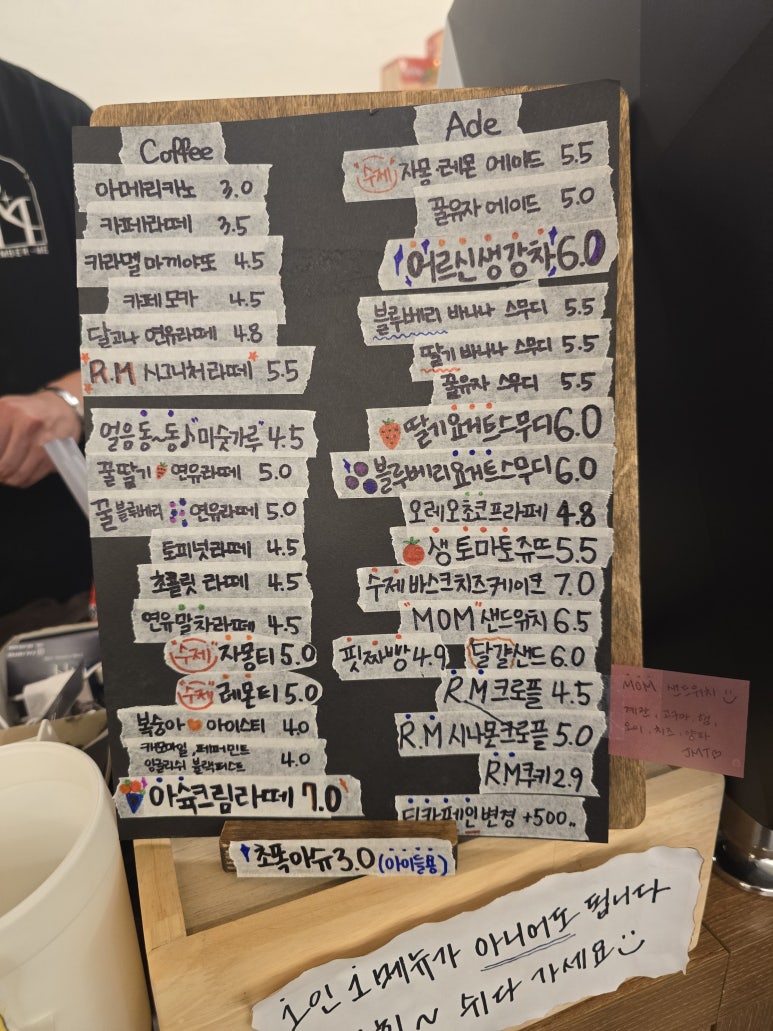 Coffee
아메리카노 3.0
카페라떼 3.5
카라멜 마끼야또 4.5
카페모카 4.5
달고나 연유라떼 4.8
R.M 시그니처라떼 5.5
얼음동~동♪"미숫가루" 4.5
꿀딸기 연유라떼 5.0
꿀블루베리 연유라떼 5.0
토피넛라떼 4.5
초콜릿 라떼 4.5
연유말차라떼 4.5
"수제" 자몽티 5.0
"수제" 레몬티 5.0
복숭아 아이스티 4.0
카모마일, 페퍼민트
잉글리쉬 블랙퍼스트 4.0
아슈크림라떼 7.0
Ade
"수제" 자몽·레몬 에이드 5.5
꿀유자 에이드 5.0
어르신생강차 6.0
블루베리 바나나 스무디 5.5
딸기 바나나 스무디 5.5
꿀유자 스무디 5.5
딸기요거트스무디 6.0
블루베리요거트스무디 6.0
오레오초코프라페 4.8
생토마토쥬뜨 5.5
수제바스크치즈케이크 7.0
"MOM" 샌드위치 6.5
핏짜빵 4.9
달걀샌드 6.0
R.M크로플 4.5
R.M시나몬크로플 5.0
R.M쿠키 2.9
디카페인변경 +500..
초폭아슈 3.0 (아이들용)
MOM 샌드위치
계란, 고구마, 햄,
오이, 치즈, 양파
JMT♡
1인 1메뉴가 아니어도 됩니다
쉬다 가세요